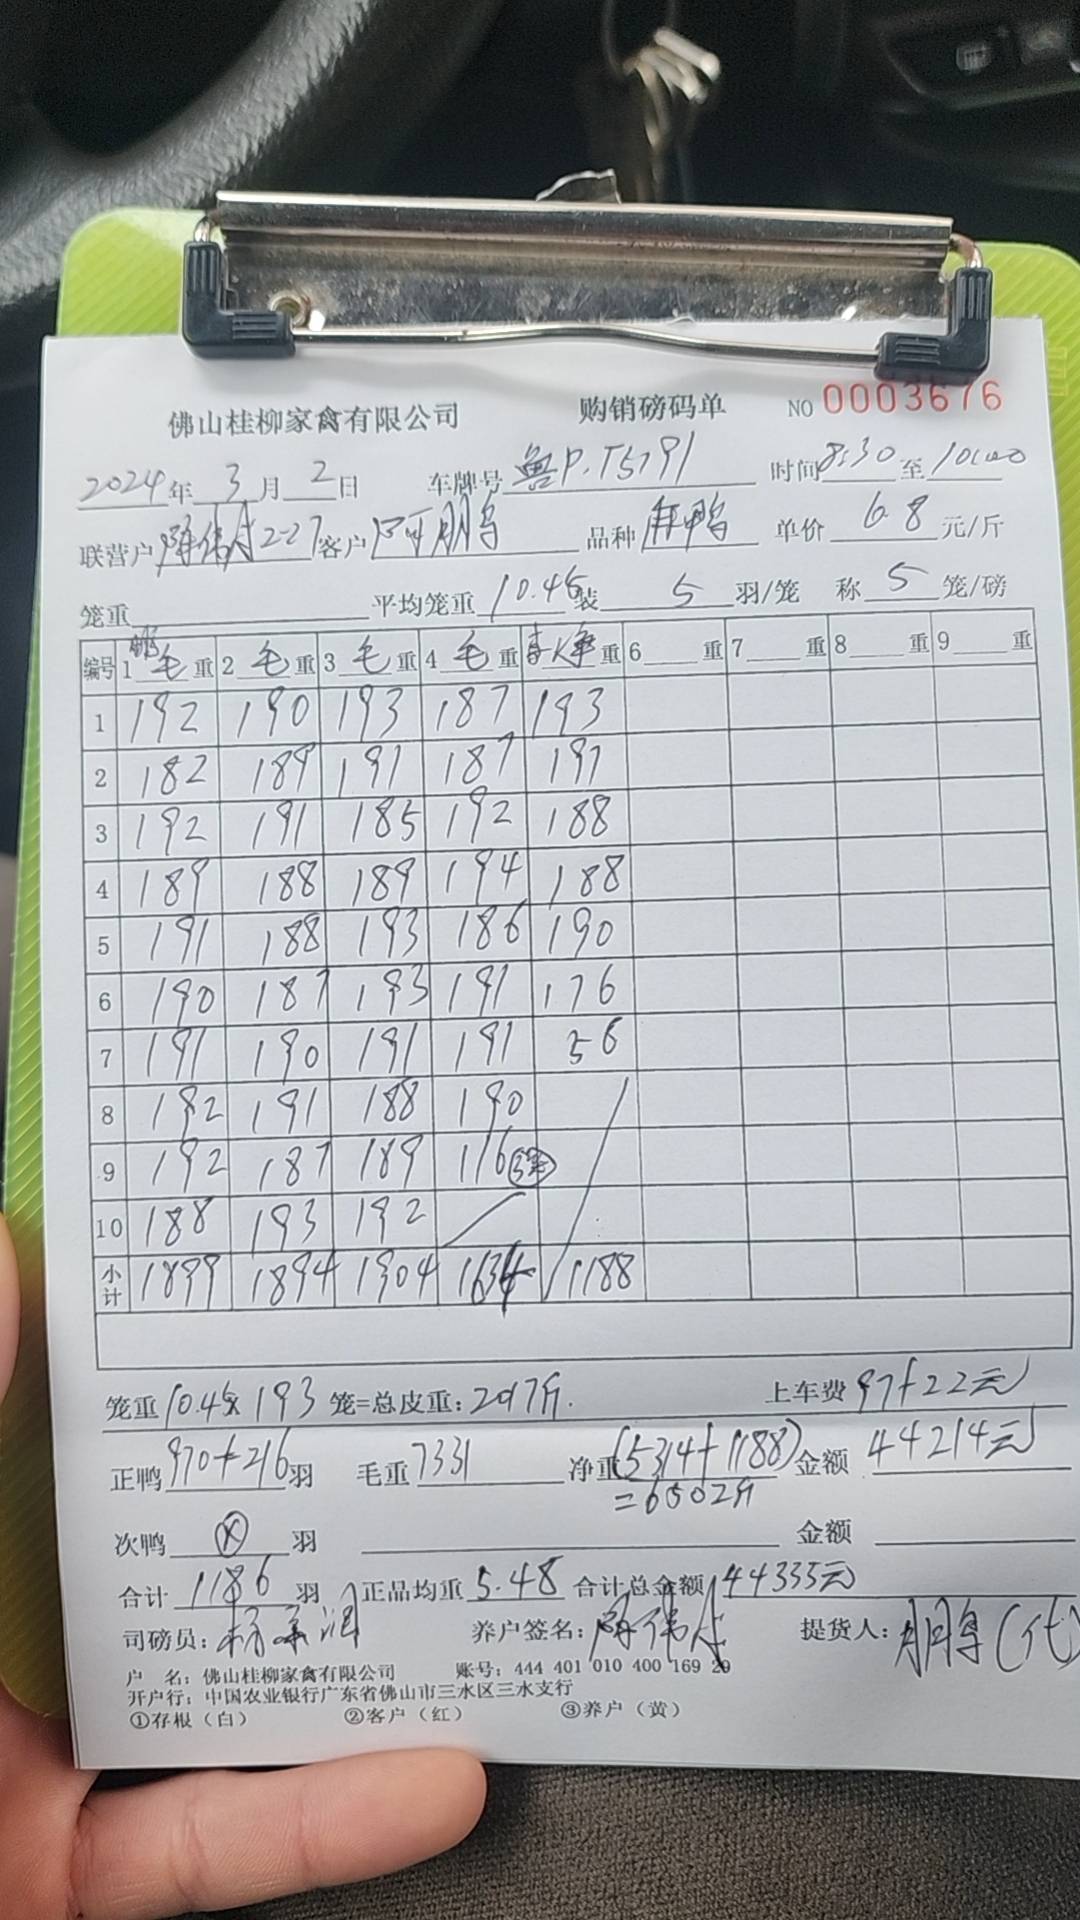 佛山桂柳家禽有限公司 购销磅码单 NO 0003676
2024年 3 月 2 日 车牌号 粤P.T5791 时间 8:30 至 10:00
联营户 陈伟 227 客户 阿朋鸟 品种 麻鸭 单价 6.8 元/斤
笼重 平均笼重 10.45 装 5 羽/笼 称 5 笼/磅
编号 1 毛 重 2 毛 重 3 毛 重 4 毛 重 净 重 6 重 7 重 8 重 9 重
1 192 190 193 187 193
2 182 189 191 187 197
3 192 191 185 192 188
4 189 188 189 194 188
5 191 188 193 186 190
6 190 187 193 191 176
7 191 190 191 191 56
8 192 191 188 190
9 192 187 189 116
10 188 193 192
小计 1899 1894 1904 1634 1188
笼重 10.45x 193 笼=总皮重: 2017斤. 上车费 97+22元
正鸭 970+216 羽 毛重 7331 净重 (5314+1188) 金额 44214元
=6502斤
次鸭 羽 金额
合计 1186 羽 正品均重 5.48 合计总金额 44335元
司磅员: 养户签名: 陈伟 提货人: (代)
户 名: 佛山桂柳家禽有限公司 账号: 444 401 010 400 169 29
开户行: 中国农业银行广东省佛山市三水区三水支行
①存根(白) ②客户(红) ③养户(黄)